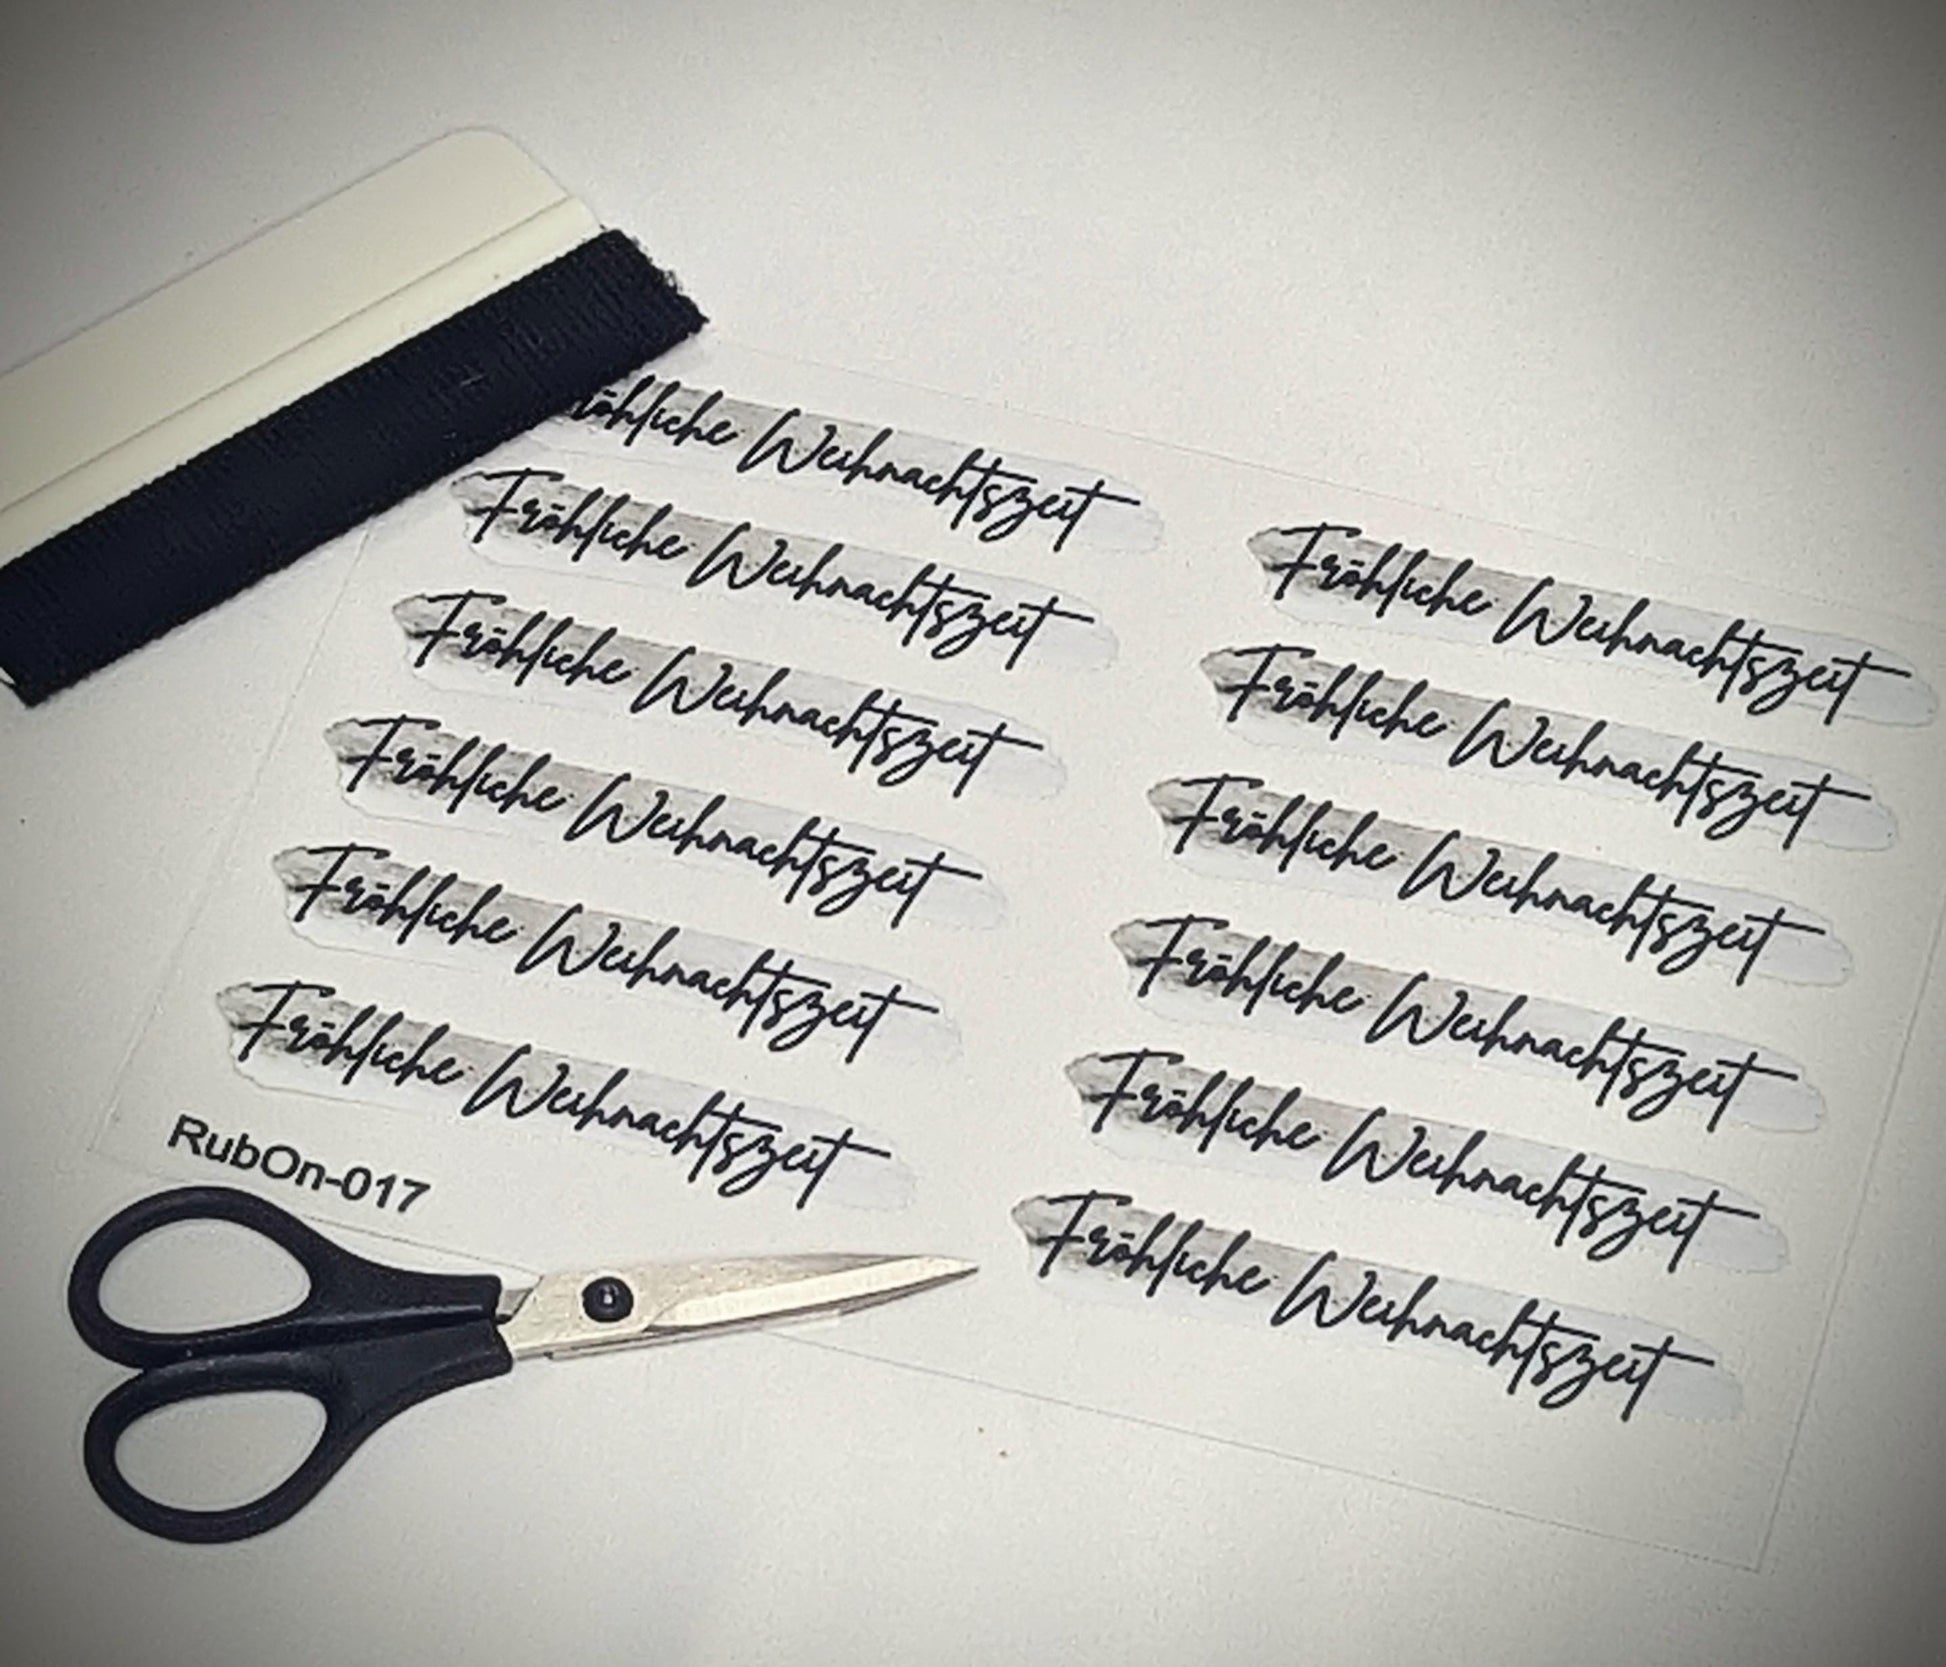 röhliche Weihnachtszeit
Fröhliche Weihnachtszeit
Fröhliche Weihnachtszeit
Fröhliche Weihnachtszeit
Fröhliche Weihnachtszeit
Fröhliche Weihnachtszeit
RubOn-017
Fröhliche Weihnachtszeit
Fröhliche Weihnachtszeit
Fröhliche Weihnachtszeit
Fröhliche Weihnachtszeit
Fröhliche Weihnachtszeit
Fröhliche Weihnachtszeit